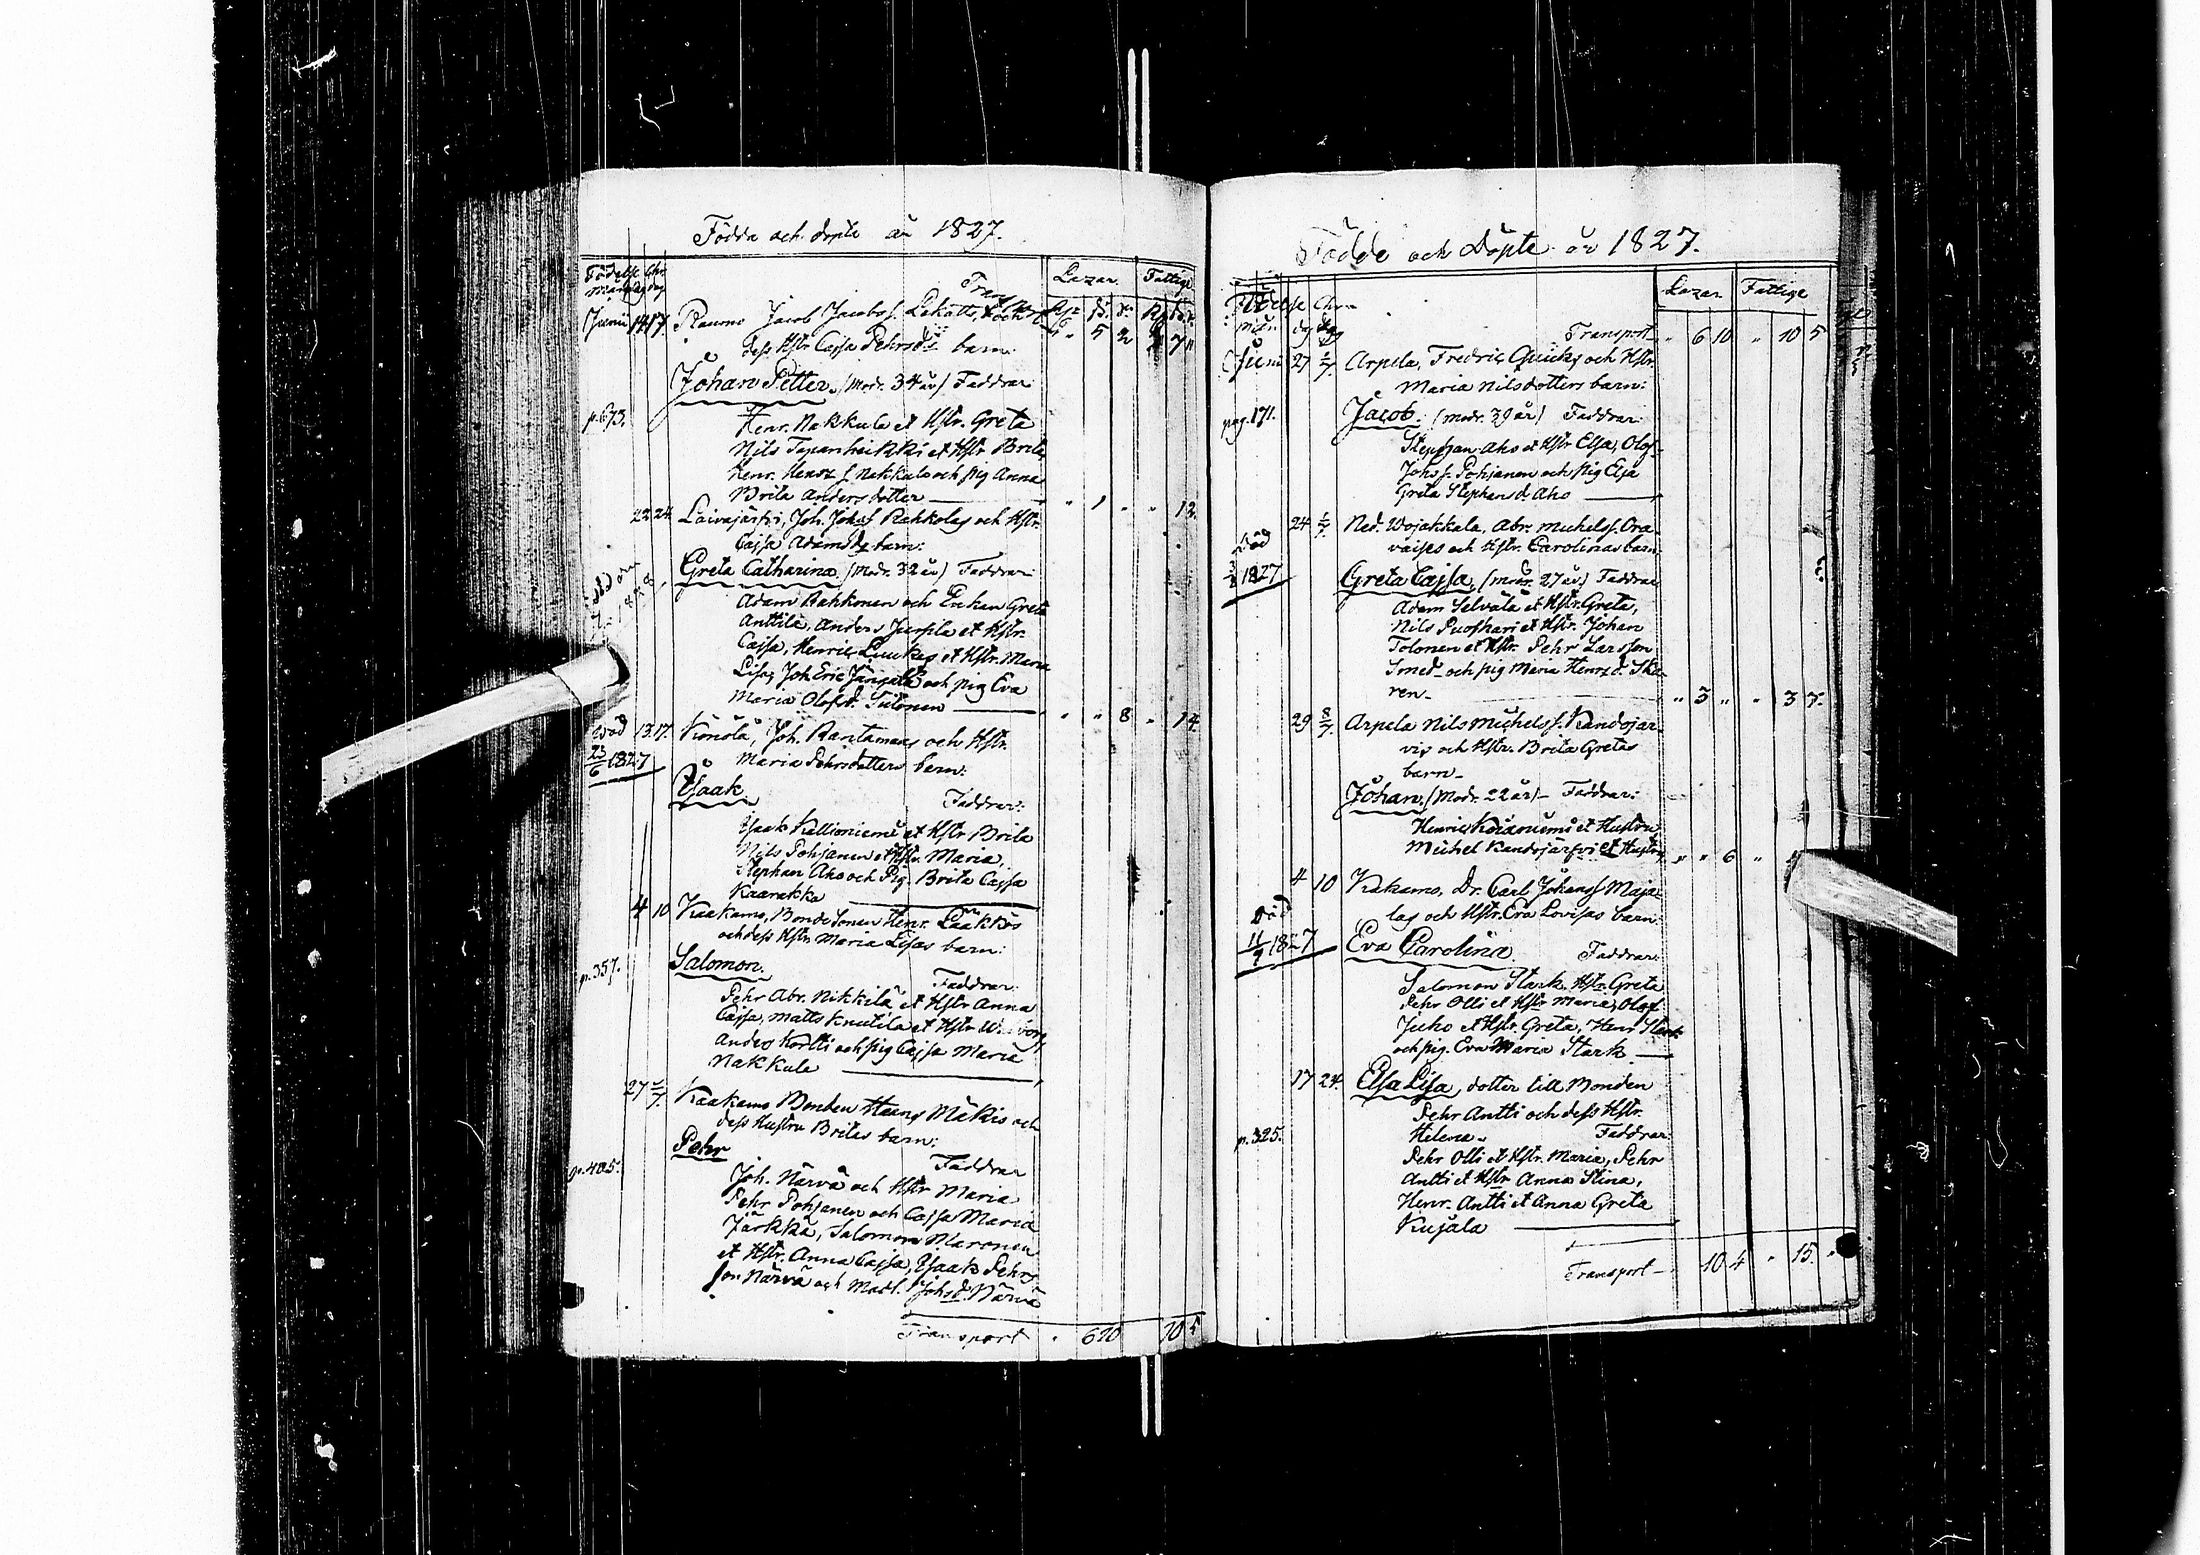 Födda och döpte år 1827.
Födelse Chr.
månad dag dag
Lazar. Fattige
Tran
Junii 14 17. Raumo Jacob Jacobss. Lekatts, och
dess Hstr Cajsa Pehrsd:s barn:
" 5 2 " 7 "
Johan Petter. (Modr. 34 år) Faddrar
p. 673. Henr. Nakkula et Hstr. Greta
Nils Tapanheikki et Hstr Brita,
Henr. Henrs f. Nakkula och pig Anna
Brita Andersdotter
" 1 " " 12.
22 24. Laivajärfvi, Joh. Johsf Rahkolas och Hstr.
Cajsa Adamsds barn:
Greta Catharina. (Modr. 32 år) Faddrar
Adam Rahkonen och Enkan Greta
Anttila, Anders Jurfila et Hstr.
Cajsa, Henric Luukas et Hstr. Maria
Lisa, Joh Eric Jängälä och pig Eva
Maria Olofsd. Tiitonen
" " 8 " 14.
Död 13 17. Könölä, Joh. Rantamaas och Hstr.
23/6 1827 Maria Pehrsdotters barn:
Isaak. Faddrar:
Isaak Kallioniemi et Hstr Brita
Nils Pohjanen et Hstr. Maria,
Stephan Aho och Pig. Brita Cajsa
Kaarakka
4 10 Kaakamo, Bonde Sonen Henr. Laakkos
och dess Hstr Maria Lisas barn:
p. 357. Salomon. Faddrar:
Pehr Abr. Nikkilä et Hstr Anna
Cajsa, Matts Knutila et Hstr Wiborg,
Anders Kortti och pig Cajsa Maria
Nakkula
27 1/7. Kaakamo Bonden Hans Mäkis och
dess Hustru Britas barn:
Pehr Faddrar
p. 405. Joh. Närvä och Hstr Maria
Pehr Pohjanen och Cajsa Maria
Järkkä, Salomon Maronen
et Hstr. Anna Cajsa, Isaak Pehrs
son Närvä och Madl. Johsd. Närvä
Transport " 6 10 10 5
Födde och Döpte år 1827.
Födelse Chr.
mån dag dag
Lazar. Fattige
Transport " 6 10 " 10 5
Juni 27 1/7. Arpela, Fredric Quicks och Hstr.
Maria Nilsdotters barn:
pag. 171. Jacob. (modr. 39 år) Faddrar:
Stephan Aho et Hstr Elsa, Olof
Johs f. Pohjanen och pig Elsa
Greta Stephansd. Aho
24 1/7. Ned. Wojakkala, Abr. Michelss. Ora-
vaises och Hstr. Carolinas barn.
Död
1827 Greta Cajsa, (modr. 27 år) Faddrar
Adam Selvälä et Hstr. Greta,
Nils Puoskari et Hstr. Johan
Tolonen et Hstr. Pehr Larsson
Smed och pig Maria Henrsd. Ska-
ren.
" 3 " " 3 7.
29 8/7. Arpela Nils Michelss. Kandojär-
vis och Hstr. Brita Gretas
barn
Johan. (Modr. 22 år) Faddrar:
Henric Koivuniemi et Hustru,
Michel Kandojärfvi et Hustru
" " 6 "
4 10 Kakamo, Dr. Carl Johanss Maja-
las och Hstr. Eva Lovisas barn.
Död
11/7 1827 Eva Carolina. Faddrar:
Salomon Stark Hstr. Greta
Pehr Olli et Hstr Maria, Olof
Juho et Hstr. Greta, Henr Stark
och pig. Eva Maria Stark
17 24. Elsa Lisa, dotter till Bonden
Pehr Antti och dess Hstr.
p. 325. Helena. Faddrar
Pehr Olli et Hstr. Maria, Pehr
Antti et Hstr Anna Stina,
Henr. Antti et Anna Greta
Kujala
Transport 10 4 " 15. "